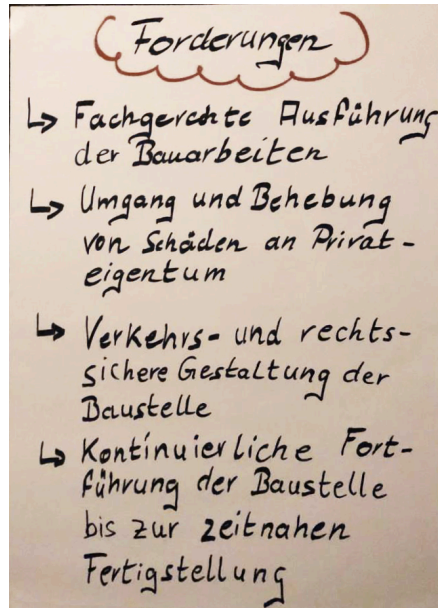 Forderungen
↳ Fachgerechte Ausführung
der Bauarbeiten
↳ Umgang und Behebung
von Schäden an Privat-
eigentum
↳ Verkehrs- und rechts-
sichere Gestaltung der
Baustelle
↳ Kontinuierliche Fort-
führung der Baustelle
bis zur zeitnahen
Fertigstellung